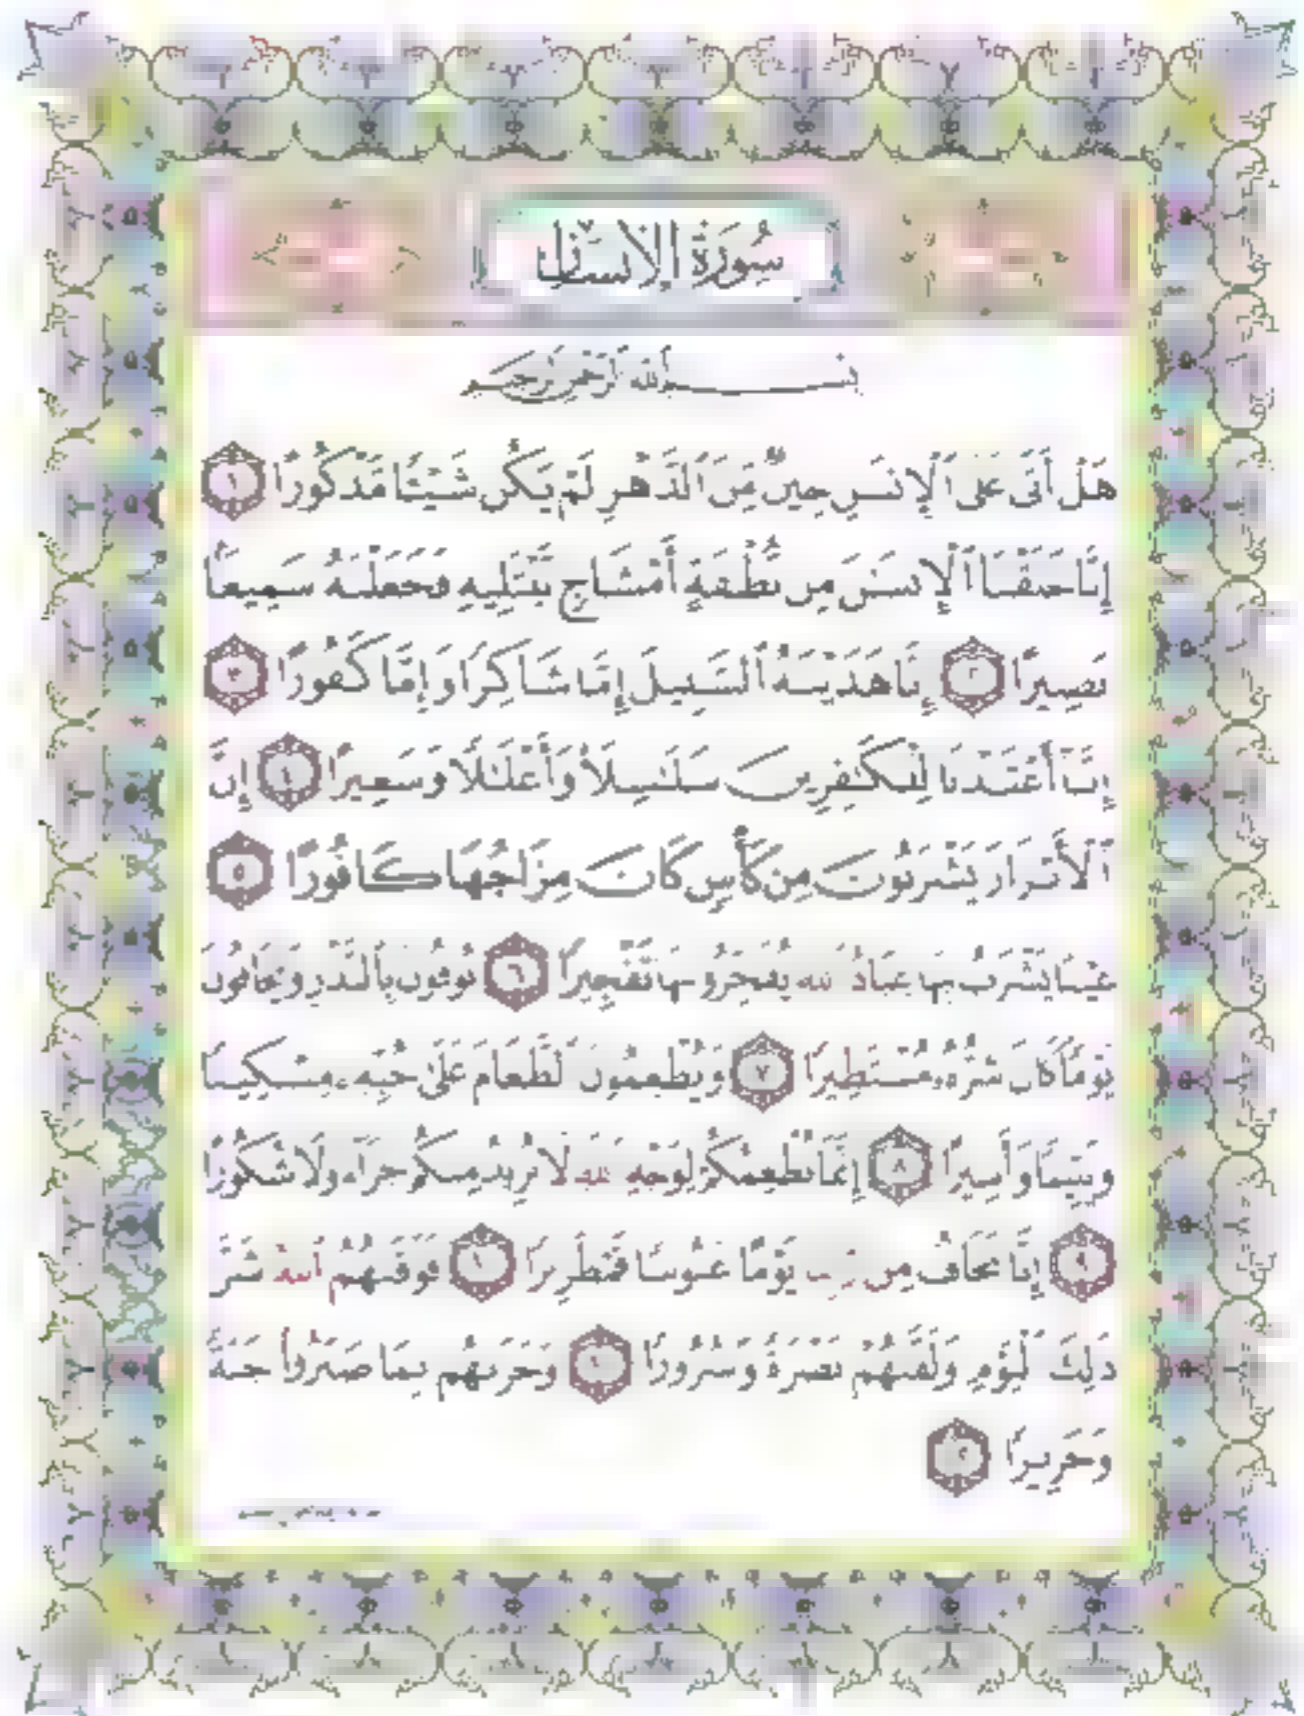 سُورَةُ الإِنسَان
بِسْمِ ٱللَّهِ ٱلرَّحْمَٰنِ ٱلرَّحِيمِ
هَلْ أَتَىٰ عَلَى ٱلْإِنسَٰنِ حِينٌ مِّنَ ٱلدَّهْرِ لَمْ يَكُن شَيْـًٔا مَّذْكُورًا ١
إِنَّا خَلَقْنَا ٱلْإِنسَٰنَ مِن نُّطْفَةٍ أَمْشَاجٍ نَّبْتَلِيهِ فَجَعَلْنَٰهُ سَمِيعًۢا
بَصِيرًا ٢ إِنَّا هَدَيْنَٰهُ ٱلسَّبِيلَ إِمَّا شَاكِرًا وَإِمَّا كَفُورًا ٣
إِنَّآ أَعْتَدْنَا لِلْكَٰفِرِينَ سَلَٰسِلَا۟ وَأَغْلَٰلًا وَسَعِيرًا ٤ إِنَّ
ٱلْأَبْرَارَ يَشْرَبُونَ مِن كَأْسٍ كَانَ مِزَاجُهَا كَافُورًا ٥
عَيْنًا يَشْرَبُ بِهَا عِبَادُ ٱللَّهِ يُفَجِّرُونَهَا تَفْجِيرًا ٦ يُوفُونَ بِٱلنَّذْرِ وَيَخَافُونَ
يَوْمًا كَانَ شَرُّهُۥ مُسْتَطِيرًا ٧ وَيُطْعِمُونَ ٱلطَّعَامَ عَلَىٰ حُبِّهِۦ مِسْكِينًا
وَيَتِيمًا وَأَسِيرًا ٨ إِنَّمَا نُطْعِمُكُمْ لِوَجْهِ ٱللَّهِ لَا نُرِيدُ مِنكُمْ جَزَآءً وَلَا شُكُورًا
٩ إِنَّا نَخَافُ مِن رَّبِّنَا يَوْمًا عَبُوسًا قَمْطَرِيرًا ١٠ فَوَقَىٰهُمُ ٱللَّهُ شَرَّ
ذَٰلِكَ ٱلْيَوْمِ وَلَقَّىٰهُمْ نَضْرَةً وَسُرُورًا ١١ وَجَزَىٰهُم بِمَا صَبَرُوا۟ جَنَّةً
وَحَرِيرًا ١٢